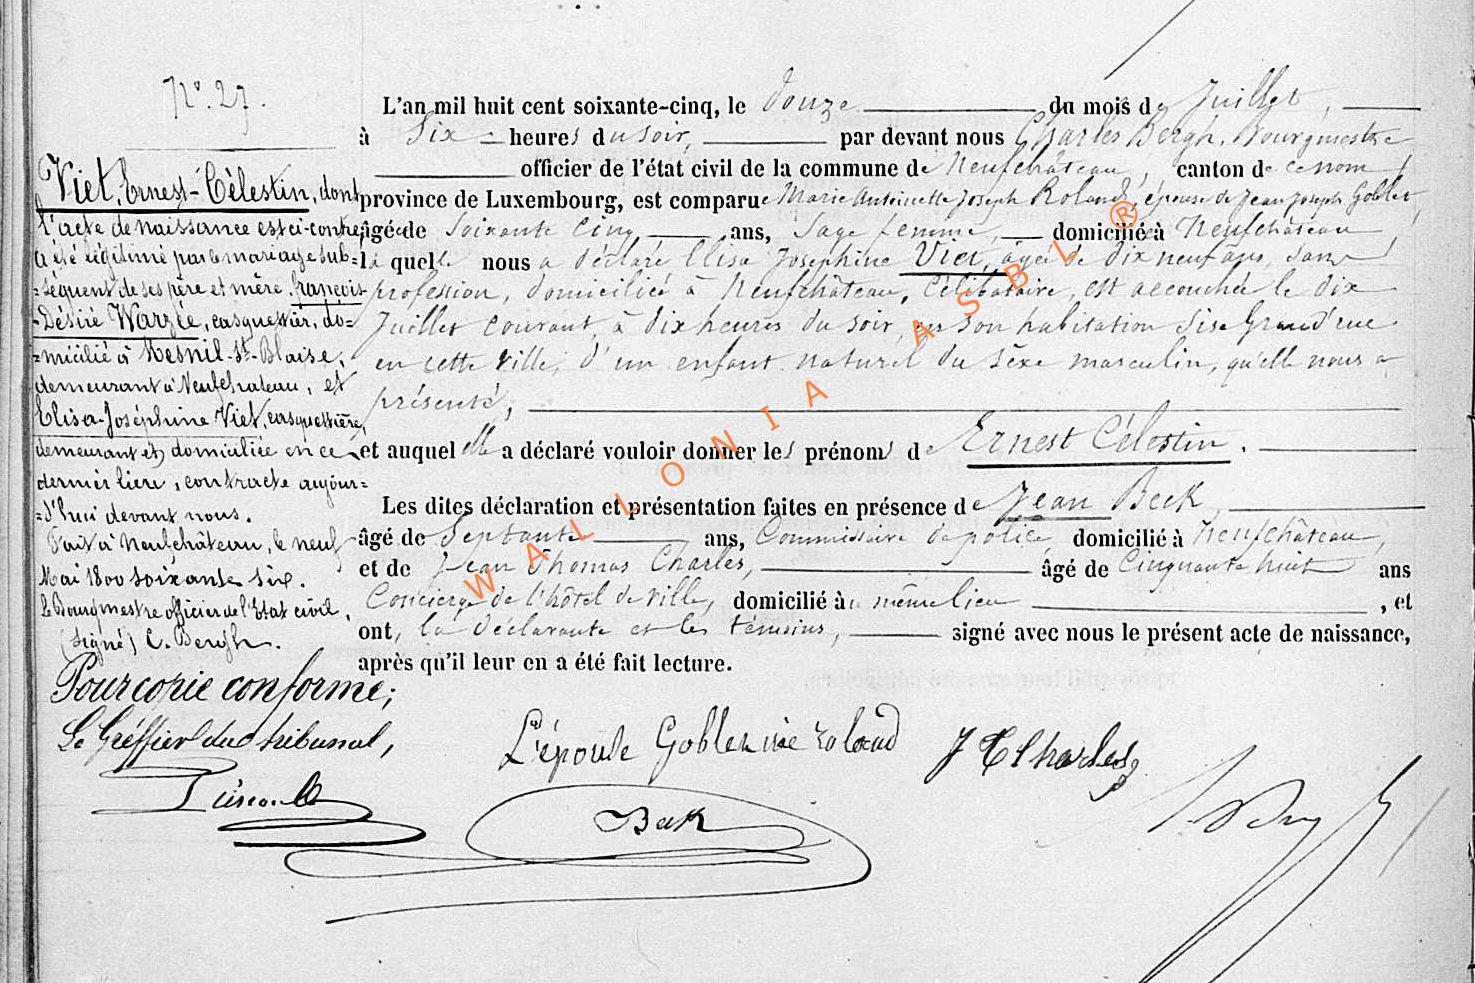 N° 27.
L'an mil huit cent soixante-cinq, le douze du mois de Juillet,
à six heures du soir, par devant nous Charles Bergh, Bourgmestre
officier de l'état civil de la commune de Neufchâteau, canton de ce nom,
province de Luxembourg, est comparue Marie Antoinette Joseph Roland, épouse de Jean Joseph Goblet,
âgée de soixante cinq ans, Sage femme, domiciliée à Neufchâteau,
laquelle nous a déclaré Elisa Josephine Viet, âgée de dix neuf ans, sans
profession, domiciliée à Neufchâteau, Célibataire, est accouchée le dix
Juillet courant, à dix heures du soir, en son habitation sise Grand'rue
en cette ville, d'un enfant naturel du sèxe masculin, qu'elle nous a
présenté,
et auquel elle a déclaré vouloir donner les prénoms de Ernest Célestin.
Les dites déclaration et présentation faites en présence de Jean Beck,
âgé de Septante ans, Commissaire de police, domicilié à Neufchâteau,
et de Jean Thomas Charles, âgé de Cinquante huit ans
Concierge de l'hôtel de ville, domicilié au même lieu, et
ont, la déclarante et les témoins, signé avec nous le présent acte de naissance,
après qu'il leur en a été fait lecture.
Viet, Ernest-Célestin, dont
l'acte de naissance est ci-contre,
a été légitimé par le mariage sub=
=séquent de ses père et mère, François
-Désiré Warzée, casquettier, do=
=micilié à Mesnil-St-Blaise,
demeurant à Neufchateau, et
Elisa-Joséphine Viet, casquettière,
demeurant et domiciliée en ce
dernier lieu, contracté aujour=
=d'hui devant nous.
Fait à Neufchâteau, le neuf
Mai 1800 soixante six.
Le Bourgmestre officier de l'Etat civil,
(signé) C. Bergh.
Pour copie conforme;
Le Gréffier du tribunal,
L'épouse Goblet née roland
J T Charles
Beck
WALLONIA ASBL ®